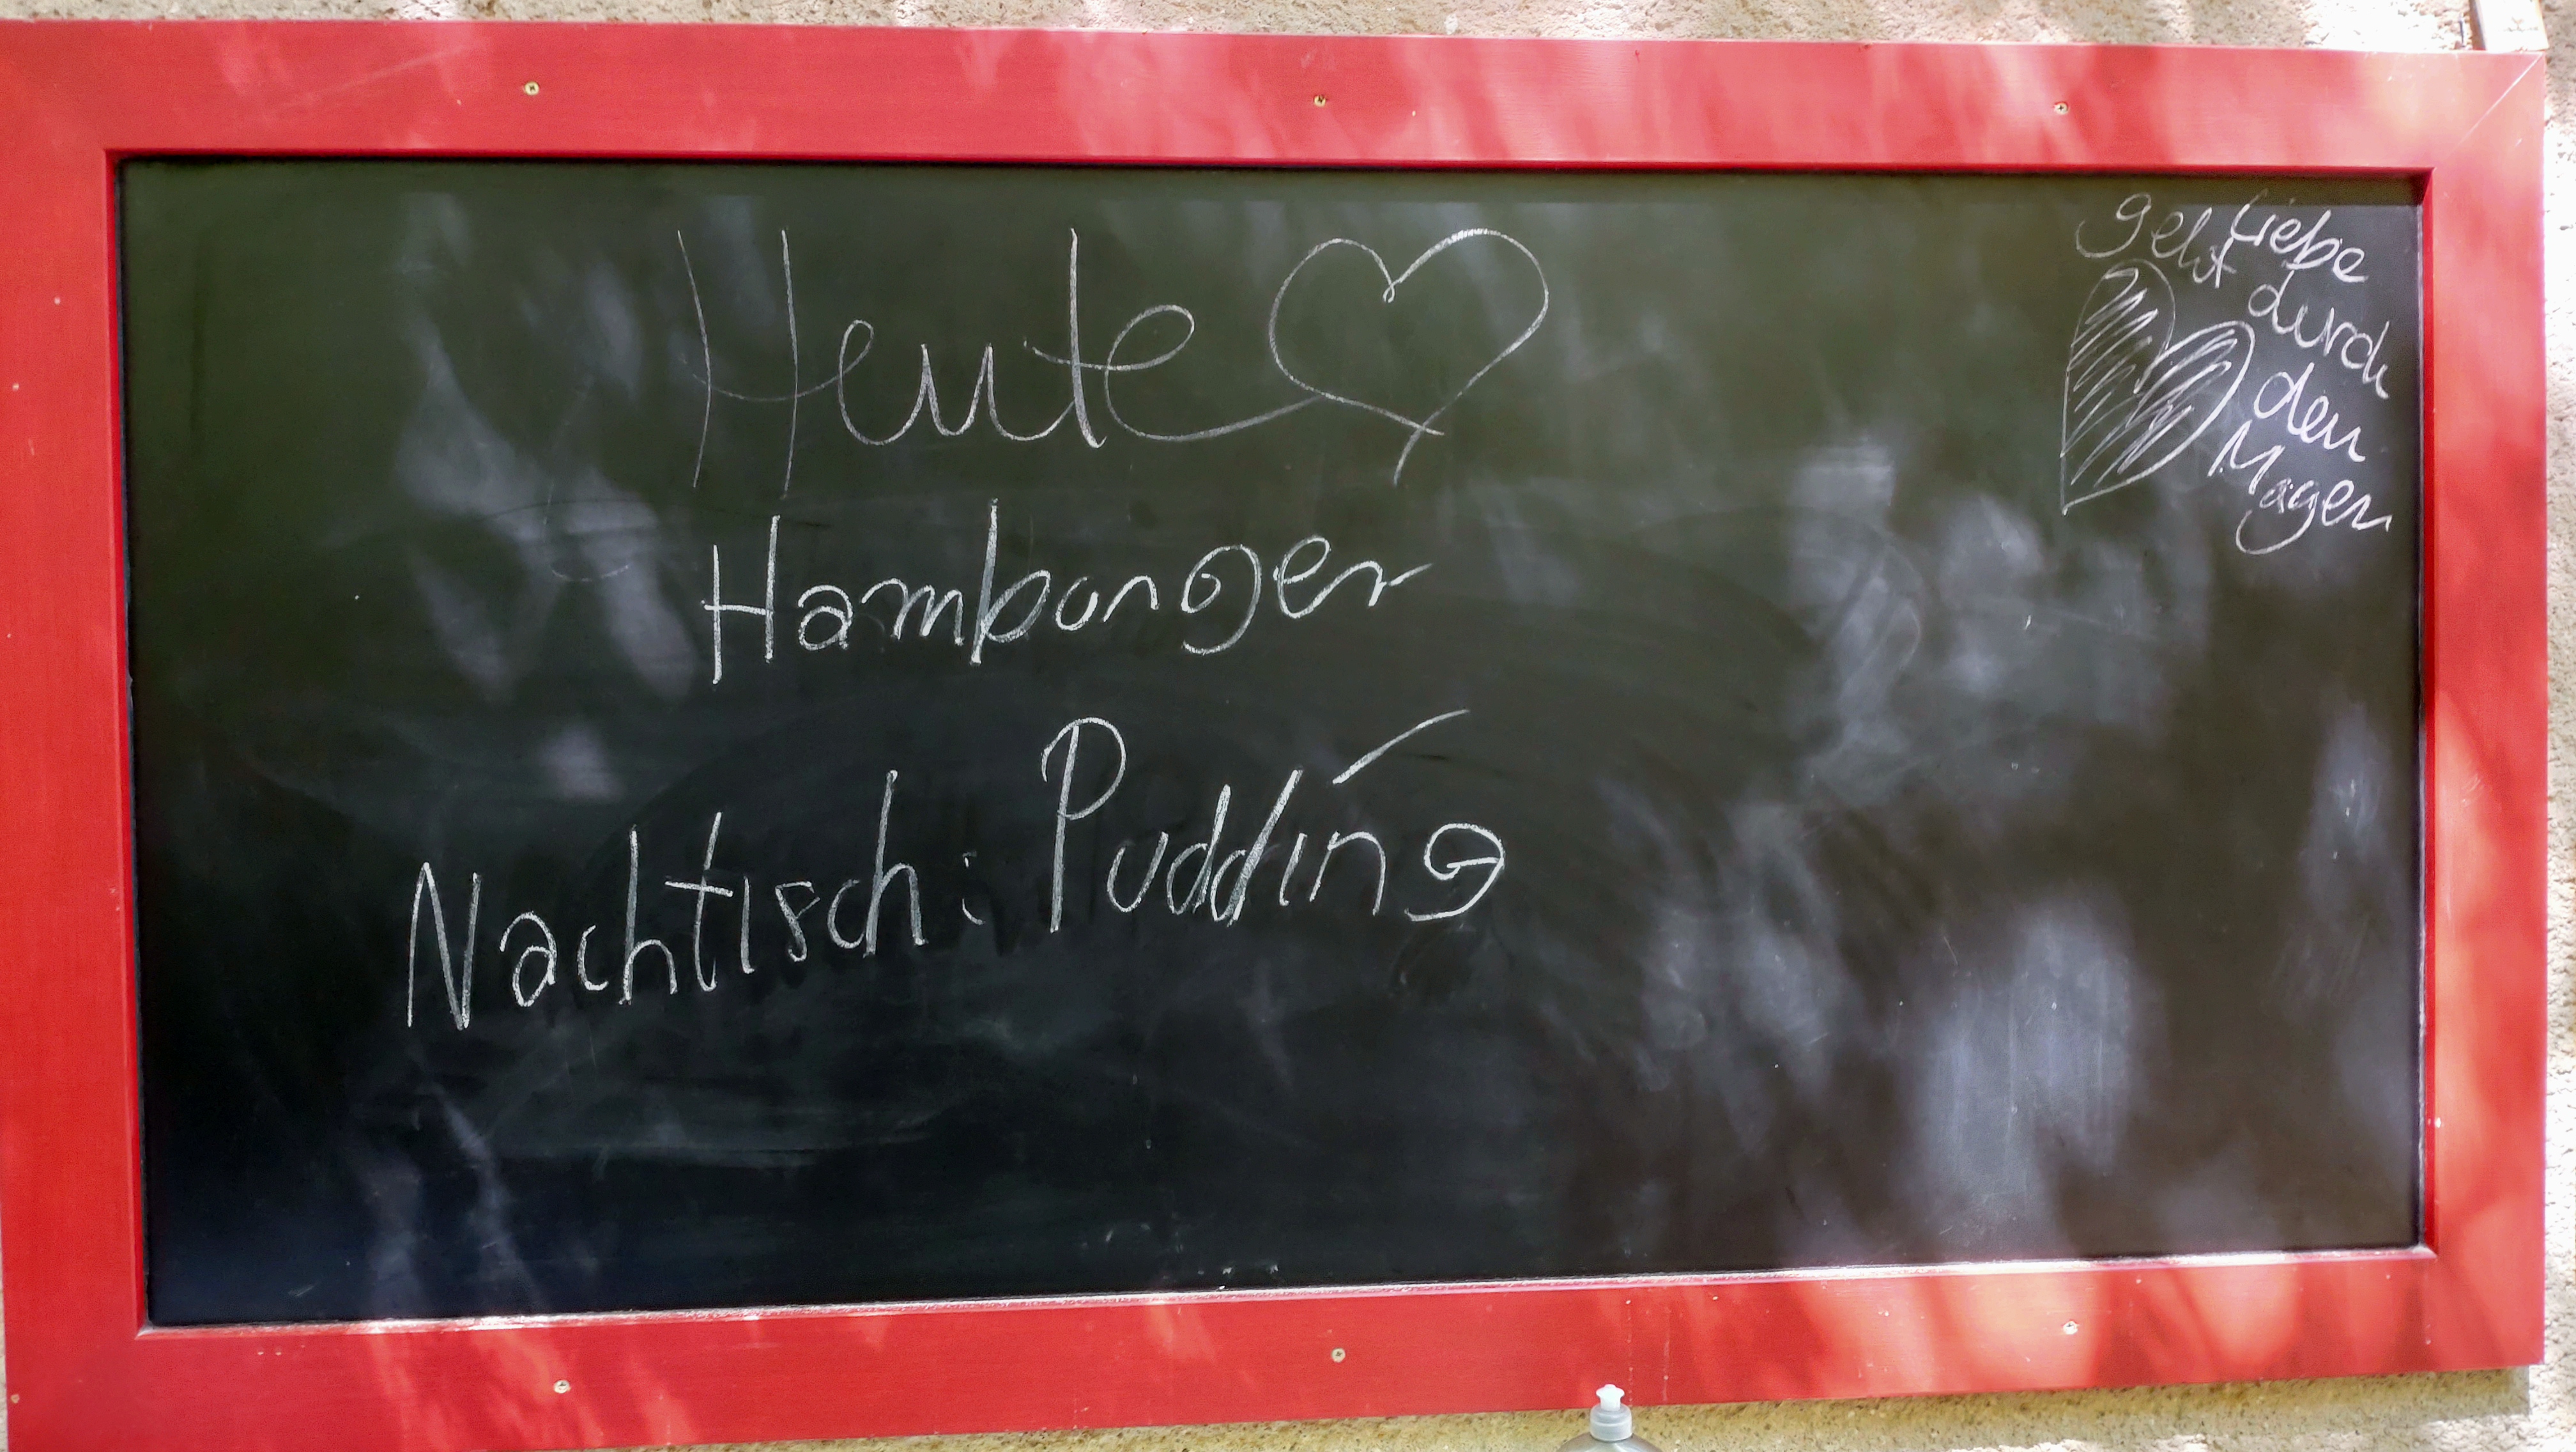 Heute
Hamburger
Nachtisch: Pudding
Liebe
geht
durch
den
Magen